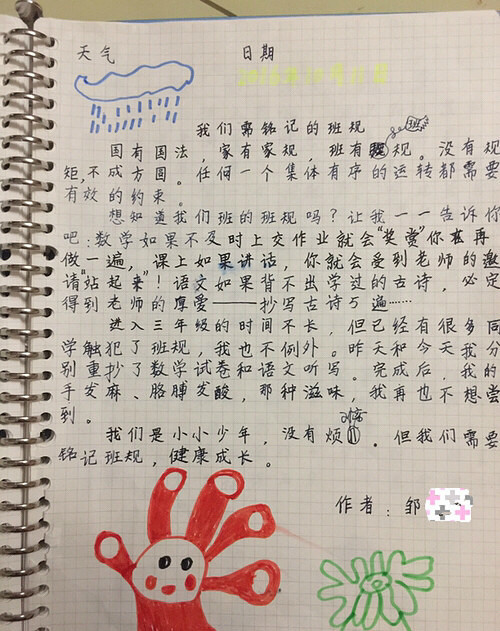 天气 日期
我们需铭记的班规
国有国法，家有家规，班有班规。没有规
矩，不成方圆。任何一个集体有序的运转都需要
有效的约束。
想知道我们班的班规吗？让我一一告诉你
吧：数学如果不及时上交作业就会“奖赏”你再
做一遍，课上如果讲话，你就会受到老师的邀
请“站起来”！语文如果背不出学过的古诗，必定
得到老师的厚爱——抄写古诗5遍……
进入三年级的时间不长，但已经有很多同
学触犯了班规，我也不例外。昨天和今天我分
别重抄了数学试卷和语文听写。完成后，我的
手发麻、胳膊发酸，那种滋味，我再也不想尝
到。
我们是小小少年，没有烦恼。但我们需要
铭记班规，健康成长。
作者：邹